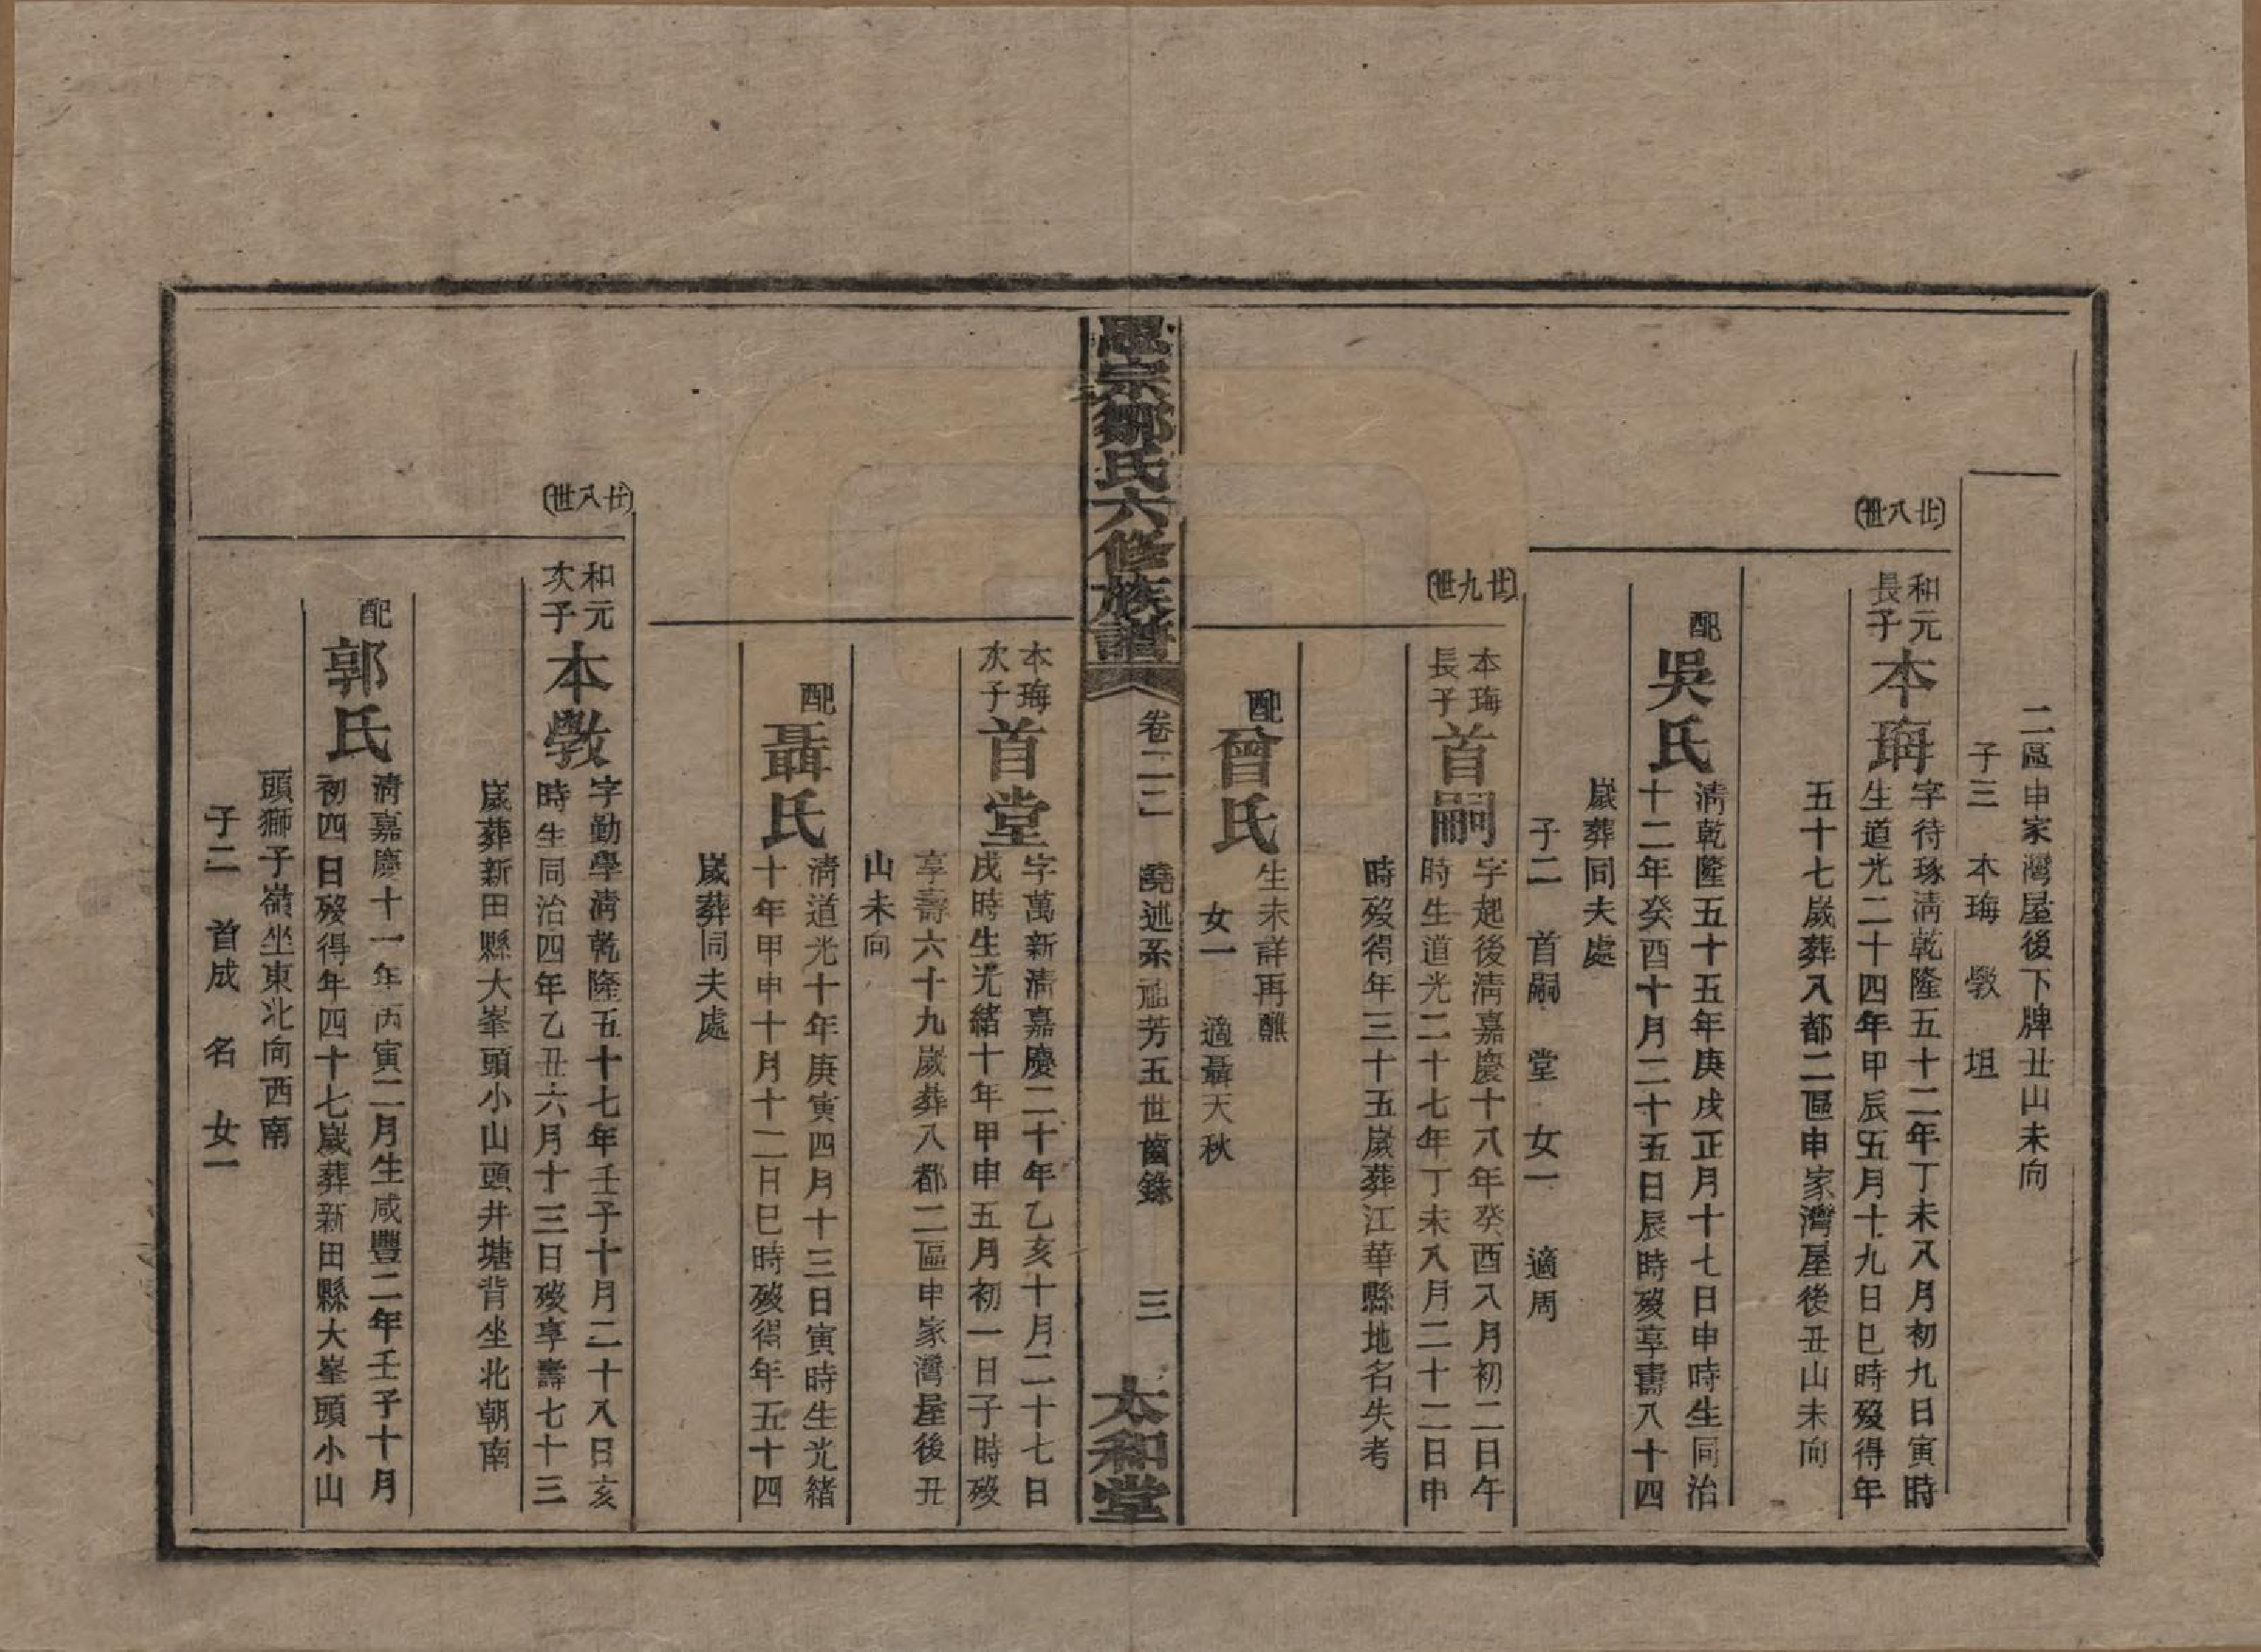 二區申家灣屋後下牌丑山未向
子三　本珻　斆　坦
〔廿八世〕
和元長子
本珻
字待琢淸乾隆五十二年丁未八月初九日寅時
生道光二十四年甲辰五月十九日巳時歿得年
五十七歲葬八都二區申家灣屋後丑山未向
配
吳氏
淸乾隆五十五年庚戌正月十七日申時生同治
十二年癸酉十月二十五日辰時歿享壽八十四
歲葬同夫處
子二　首嗣　堂　女一　適周
〔廿九世〕
本珻長子
首嗣
字起後淸嘉慶十八年癸酉八月初二日午
時生道光二十七年丁未八月二十二日申
時歿得年三十五歲葬江華縣地名失考
配
曾氏
生未詳再醮
女一　適聶天秋
思宗鄒氏六修族譜
卷二二　蕘述系 芳五世齒錄　三
太和堂
本珻次子
首堂
字萬新淸嘉慶二十年乙亥十月二十七日
戌時生光緖十年甲申五月初一日子時歿
享壽六十九歲葬八都二區申家灣屋後丑
山未向
配
聶氏
淸道光十年庚寅四月十三日寅時生光緖
十年甲申十月十二日巳時歿得年五十四
歲葬同夫處
〔廿八世〕
和元次子
本斆
字勤學淸乾隆五十七年壬子十月二十八日亥
時生同治四年乙丑六月十三日歿享壽七十三
歲葬新田縣大峯頭小山頭井塘背坐北朝南
配
郭氏
淸嘉慶十一年丙寅二月生咸豐二年壬子十月
初四日歿得年四十七歲葬新田縣大峯頭小山
頭獅子嶺坐東北向西南
子二　首成　名　女一